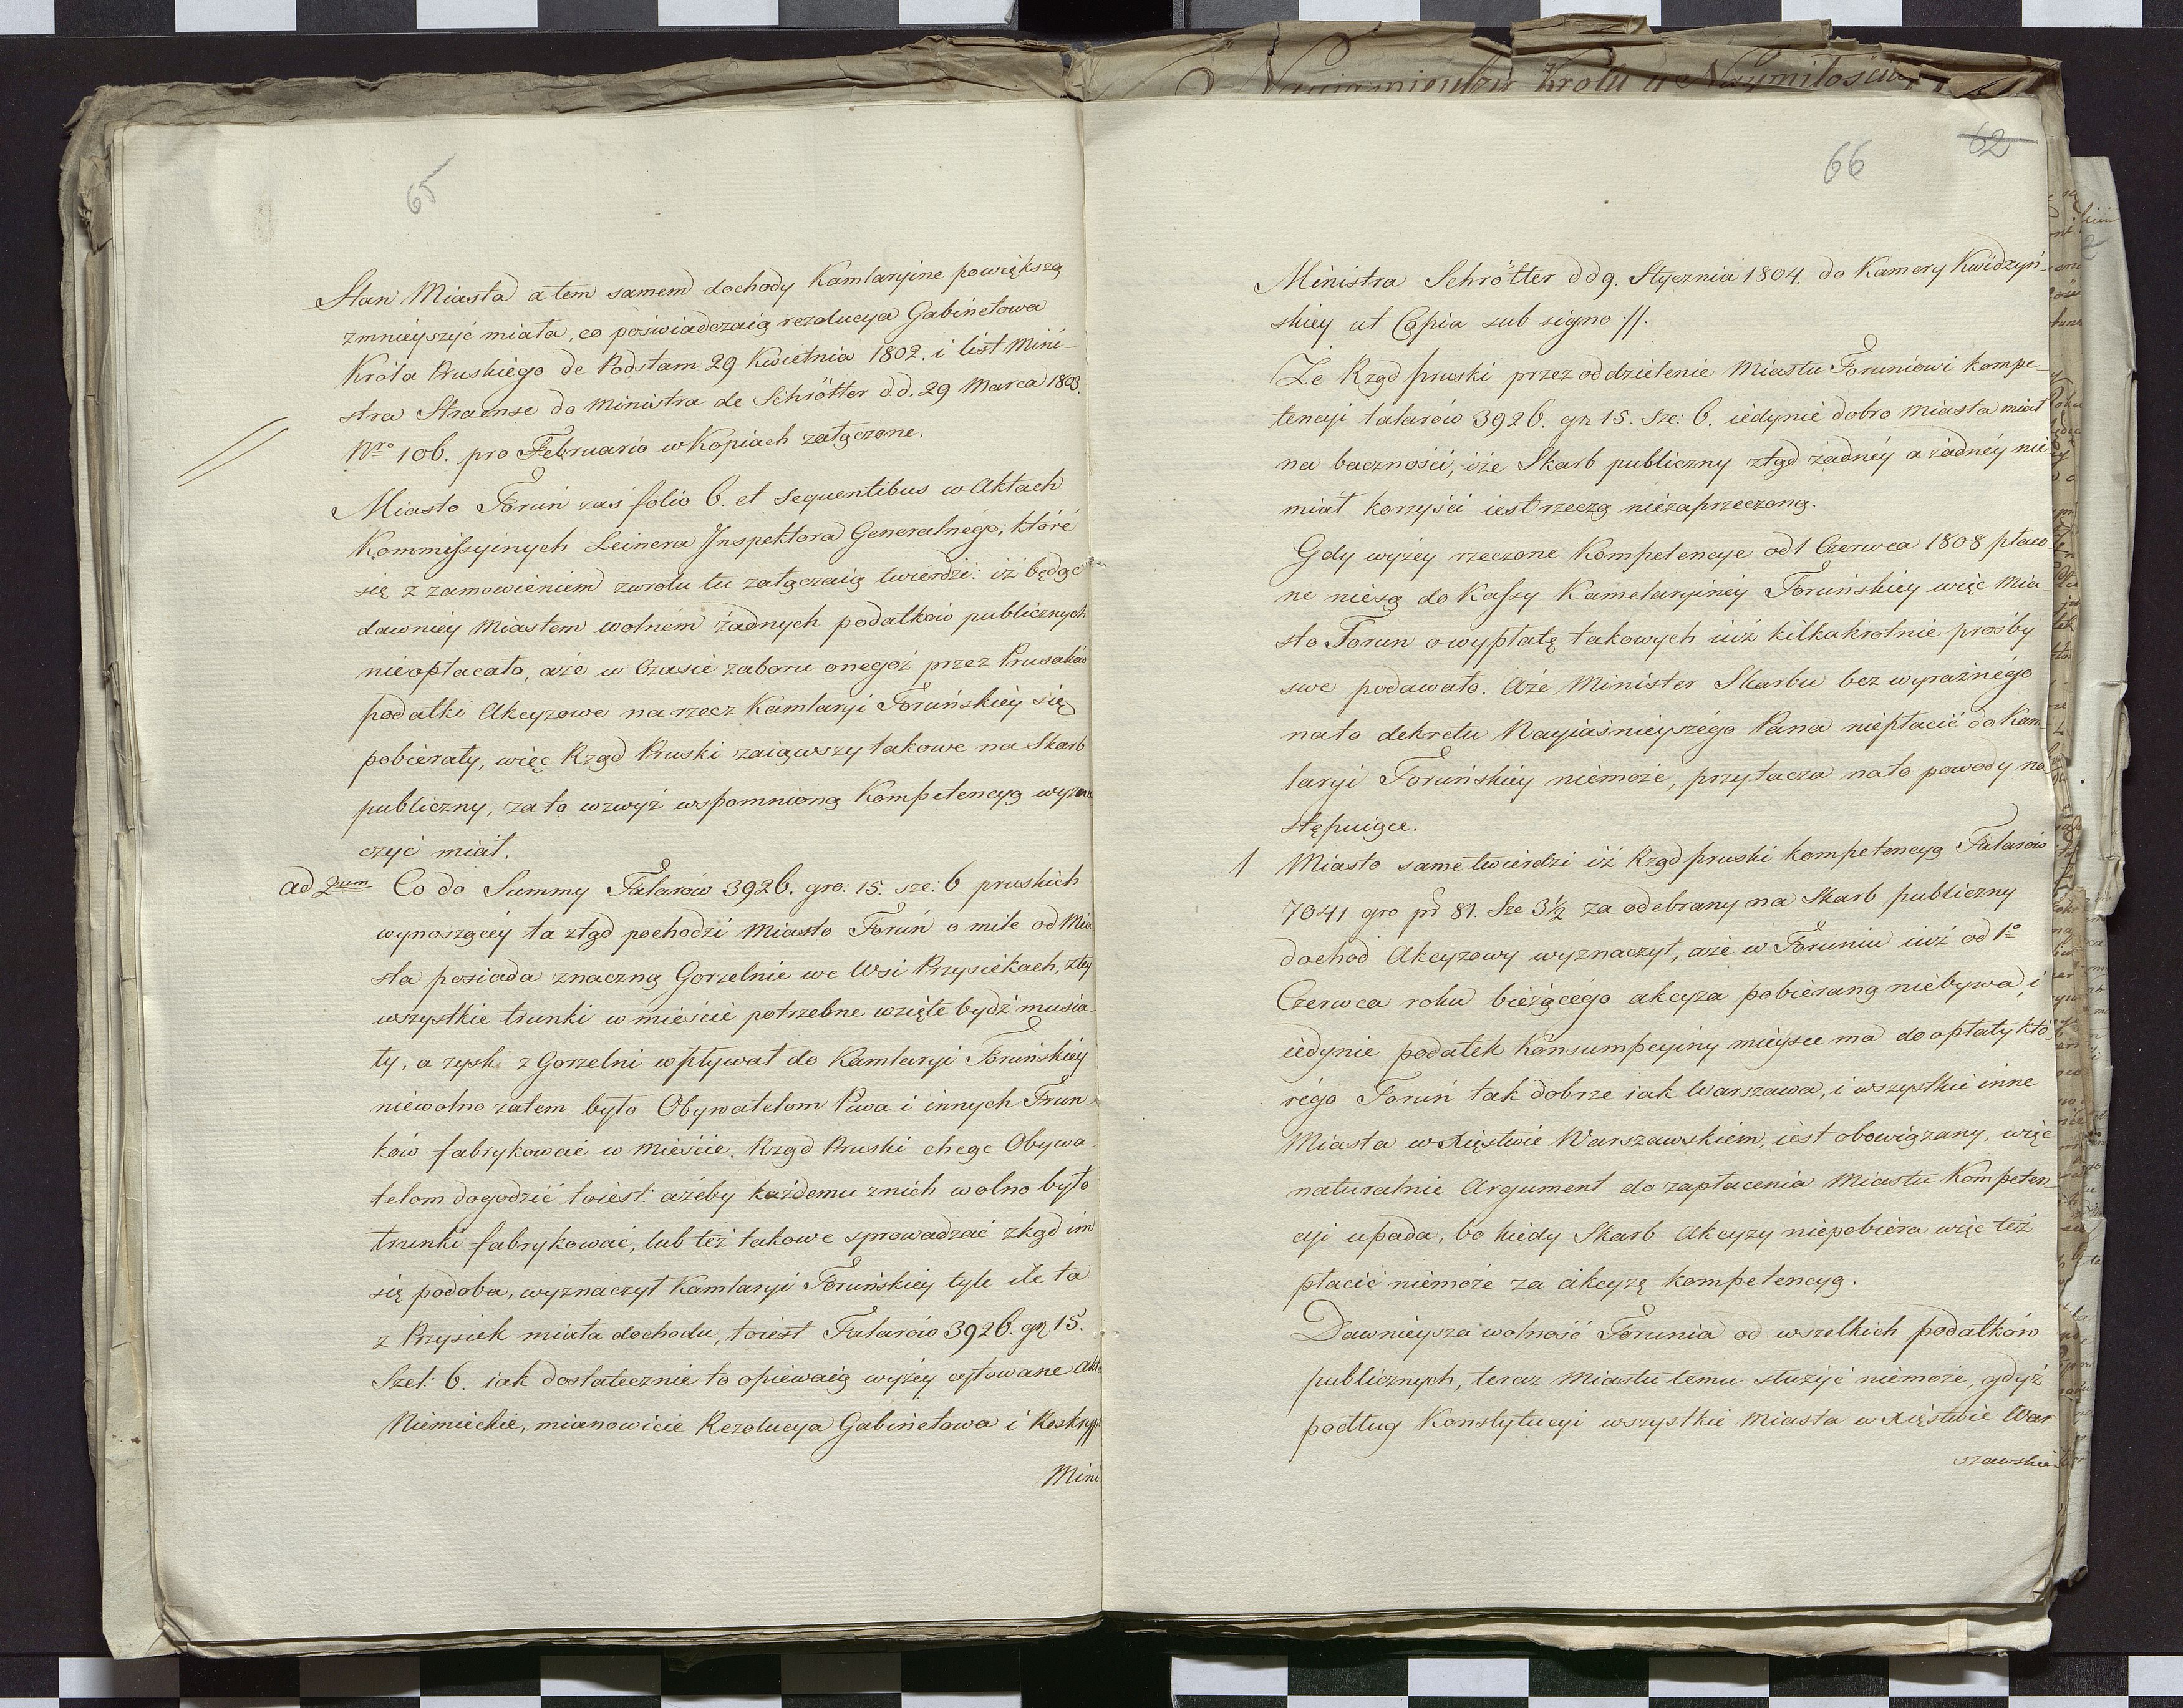 65
Stan Miasta a tem samem dochody Kamlaryine powiększą
zmnieyszyć miała, co poświadczaią rezolucya Gabinetowa
Króla Pruskiego de Podstam 29 Kwietnia 1802. i list Mini-
stra Straense do Ministra de Schrötter d.d. 29 Marca 1803.
Nro 106. pro Februario w Kopiach załączone.
Miasto Toruń zaś folio 6. et Sequentibus w Aktach
Kommissyinych Leinera Inspektora Generalnégo; któré
się z zamowieniem zwrotu tu załączaią twierdzi: iż będąc
dawniey Miastem wolném żadnych podatków publicznych
nieopłacało, aże w Czasie zaboru onegoż przez Prusaków
podatki Akcyzowe na rzecz Kamlaryi Toruńskiey się
pobierały, więc Rząd Pruski zaiąwszy takowe na Skarb
publiczny, za to wzwyż wspomnioną Kompetencyą wyzna
czyć miał.
ad 2um Co do Summy Talarów 3926. gro: 15. sze: 6 pruskich
wynoszącéy ta ztąd pochodzi Miasto Toruń o mile od Mia
sta posiada znaczną Gorzelnie we Wsi Przysiekach, z tey
wszystkie trunki w mieście potrzebne wzięte bydź musia-
ły, a zysk z Gorzelni wpływał do Kamlaryi Toruńskiey
niewolno zatem było Obywatelom Piwa i innych Trun
ków fabrykować w mieście. Rząd Pruski chcąc Obywa-
telom dogodzić toiest: ażeby każdemu z nich wolno było
trunki fabrykować, lub też takowe sprowadzać zkąd im
się podoba, wyznaczył Kamlaryi Toruńskiey tyle ile ta
z Przysiek miała dochodu, toiest Talarów 3926. gr 15.
Szel: 6. iak dostatecznie to opiewaią wyżey cytowane Akta
Niemieckie, mianowicie Rezolucya Gabinetowa i Reskryp
Mini
62
66
Ministra Schrötter d d 9. Stycznia 1804. do Kamery Kwidzyń-
skiey ut Copia sub signo //.
Ze Rząd pruski przez oddzielenie Miastu Toruniowi kompe-
tencyi talarów 3926. gr 15. Sze: 6. iedynie dobro miasta miał
na baczności, iże Skarb publiczny ztąd żadnéy a żadnéy nie
miał korzyści iest rzeczą niezaprzeczoną.
Gdy wyżey rzeczone Kompetencye od 1 Czerwca 1808 płaco
ne niesą do Kassy Kamelaryinéy Toruńskiey więc Mia-
sto Torun o wypłatę takowych iuż kilkakrotnie prośby
swe podawało. Aże Minister Skarbu bez wyraźnégo
nato dekretu Nayiaśnieyszégo Pana niepłacić do Kam
laryi Toruńskiey niemoże, przytacza nato powody na
stępuiące.
1 Miasto same twierdzi iż Rząd pruski kompetencyą Talarów
7041 gro pr 81. Sze 3½ za odebrany na Skarb publiczny
dochod Akcyzowy wyznaczył, aże w Toruniu iuż od 1o
Czerwca roku bieżącégo akcyza pobieraną niebywa, i
iedynie podatek Konsumpcyiny mieysce ma do opłaty któ-
régo Toruń tak dobrze iak Warszawa, i wszystkie inne
Miasta w Xięstwie Warszawskiem, iest obowiązany, więc
naturalnie Argument do zapłacenia Miastu Kompeten-
cyi upada, bo kiedy Skarb Akcyzy niepobiéra więc też
płacić niemoże za akcyzę kompetencyą.
Dawnieysza wolność Torunia od wszelkich podatków
publicznych, teraz Miastu temu służyć niemoże, gdyż
podług Konstytucyi wszystkie Miasta w Xięstwie War
szawskie